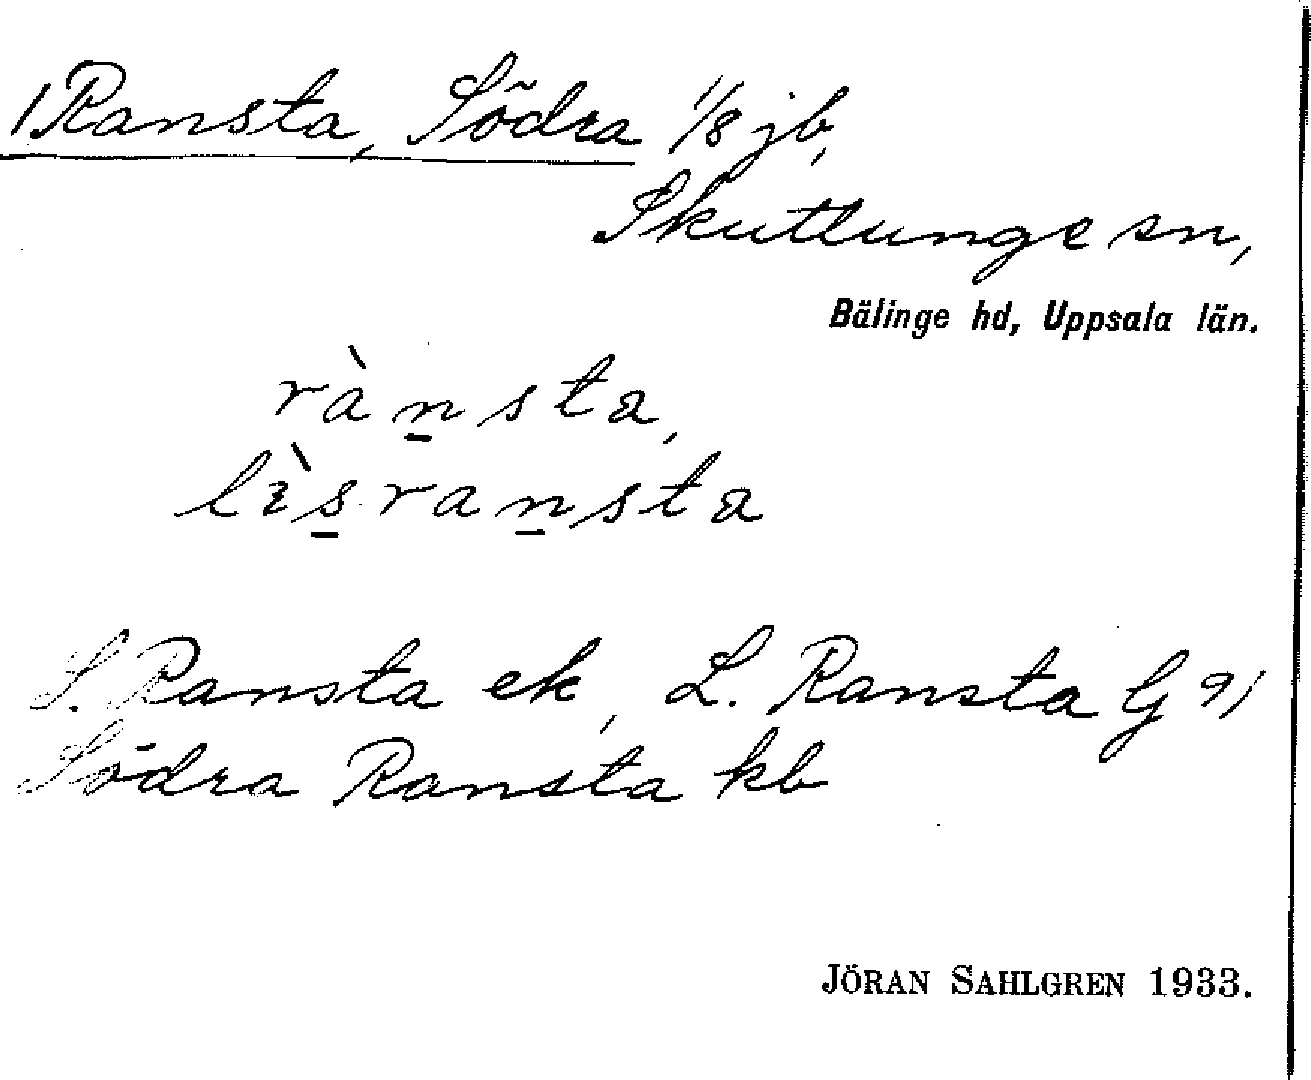 1 Ransta, Södra 1/8 jb,
Skuttunge sn,
Bälinge hd, Uppsala län.
ràn̲sta,
lìs̲ran̲sta
S. Ransta ek, L. Ransta G 91
Södra Ransta kb
JÖRAN SAHLGREN 1933.